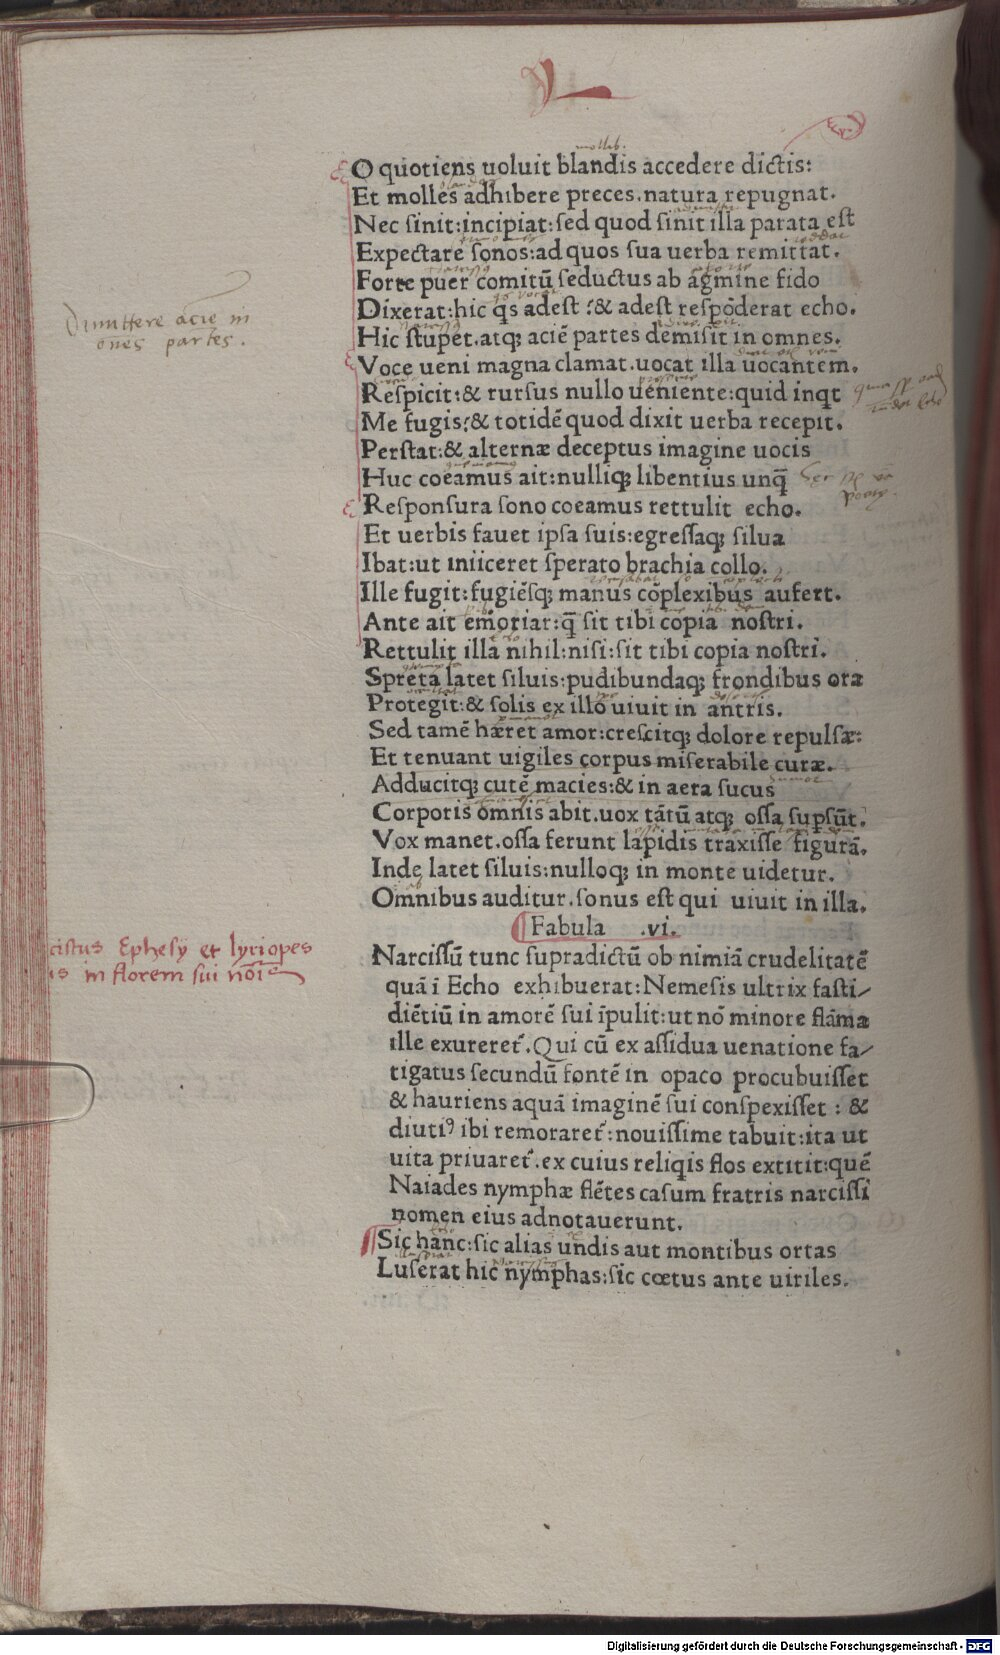 O quotiens uoluit blandis accedere dictis:
Et molles adhibere preces.natura repugnat.
Nec sinit:incipiat:sed quod sinit illa parata est
Expectare sonos:ad quos sua uerba remittat.
Forte puer comitū seductus ab agmine fido
Dixerat:hic q̄s adest ?& adest respōderat echo.
Hic stupet.atqꝫ aciē partes demisit in omnes.
Dimittere aciē in
on̄es partes.
Voce ueni magna clamat.uocat illa uocantem.
Respicit:& rursus nullo ueniente:quid inqt
Me fugis?& totidē quod dixit uerba recepit.
Perstat:& alternæ deceptus imagine uocis
Huc coeamus ait:nulliqꝫ libentius unq̄
Responsura sono coeamus rettulit echo.
Et uerbis fauet ipsa suis:egressaqꝫ silua
Ibat:ut iniiceret sperato brachia collo.
Ille fugit:fugiēsqꝫ manus cōplexibus aufert.
Ante ait emoriar:q̄ sit tibi copia nostri.
Rettulit illa nihil:nisi:sit tibi copia nostri.
Spreta latet siluis:pudibundaqꝫ frondibus ora
Protegit:& solis ex illo uiuit in antris.
Sed tamē hæret amor:crescitqꝫ dolore repulsæ:
Et tenuant uigiles corpus miserabile curæ.
Adducitqꝫ cutē macies:& in aera sucus
Corporis omnis abit.uox tātū atqꝫ ossa supsūt.
Vox manet.ossa ferunt lapidis traxisse figurā.
Inde latet siluis:nulloqꝫ in monte uidetur.
Omnibus auditur.sonus est qui uiuit in illa.
Fabula .vi.
Ephesy et lyriopes
in florem sui nōis
Narcissū tunc supradictū ob nimiā crudelitatē
quā ī Echo exhibuerat:Nemesis ultrix fasti/
diētiū in amorē sui īpulit:ut nō minore flāma
ille exureret̄.Qui cū ex assidua uenatione fa/
tigatus secundū fontē in opaco procubuisset
& hauriens aquā imaginē sui conspexisset : &
diutiꝰ ibi remoraret̄:nouissime tabuit:ita ut
uita priuaret̄.ex cuius reliqis flos extitit:quē
Naiades nymphæ flētes casum fratris narcissi
nomen eius adnotauerunt.
Sic hanc:sic alias undis aut montibus ortas
Luserat hic nymphas:sic cœtus ante uiriles.
Digitalisierung gefördert durch die Deutsche Forschungsgemeinschaft - DFG